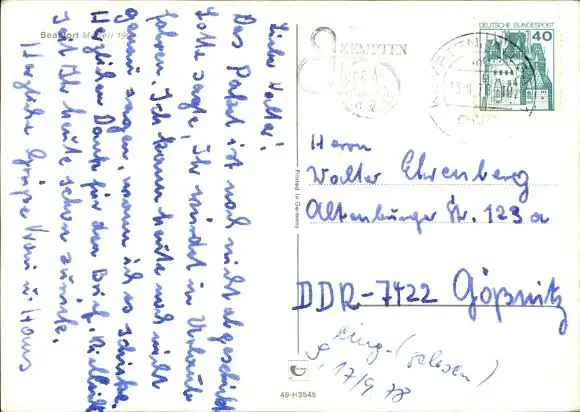 Beaufort Modell 19
Lieber Walter!
Das Paket ist noch nicht abgeschickt
Lotte sagte, Ihr würdet in Urlaub
fahren. Ich kann heute noch nicht
genau sagen, wann ich es schicke.
Herzlichen Dank für den Brief. Vielleicht
seid Ihr heute schon zurück.
Herzliche Grüße u. Hans
KEMPTEN
DEUTSCHE BUNDESPOST
40
Printed in Germany
Herrn
Walter Ehrenberg
Altenburger Str. 123 a
DDR-7422 Gößnitz
Eing. (gelesen)
17/9 78
49-H3545